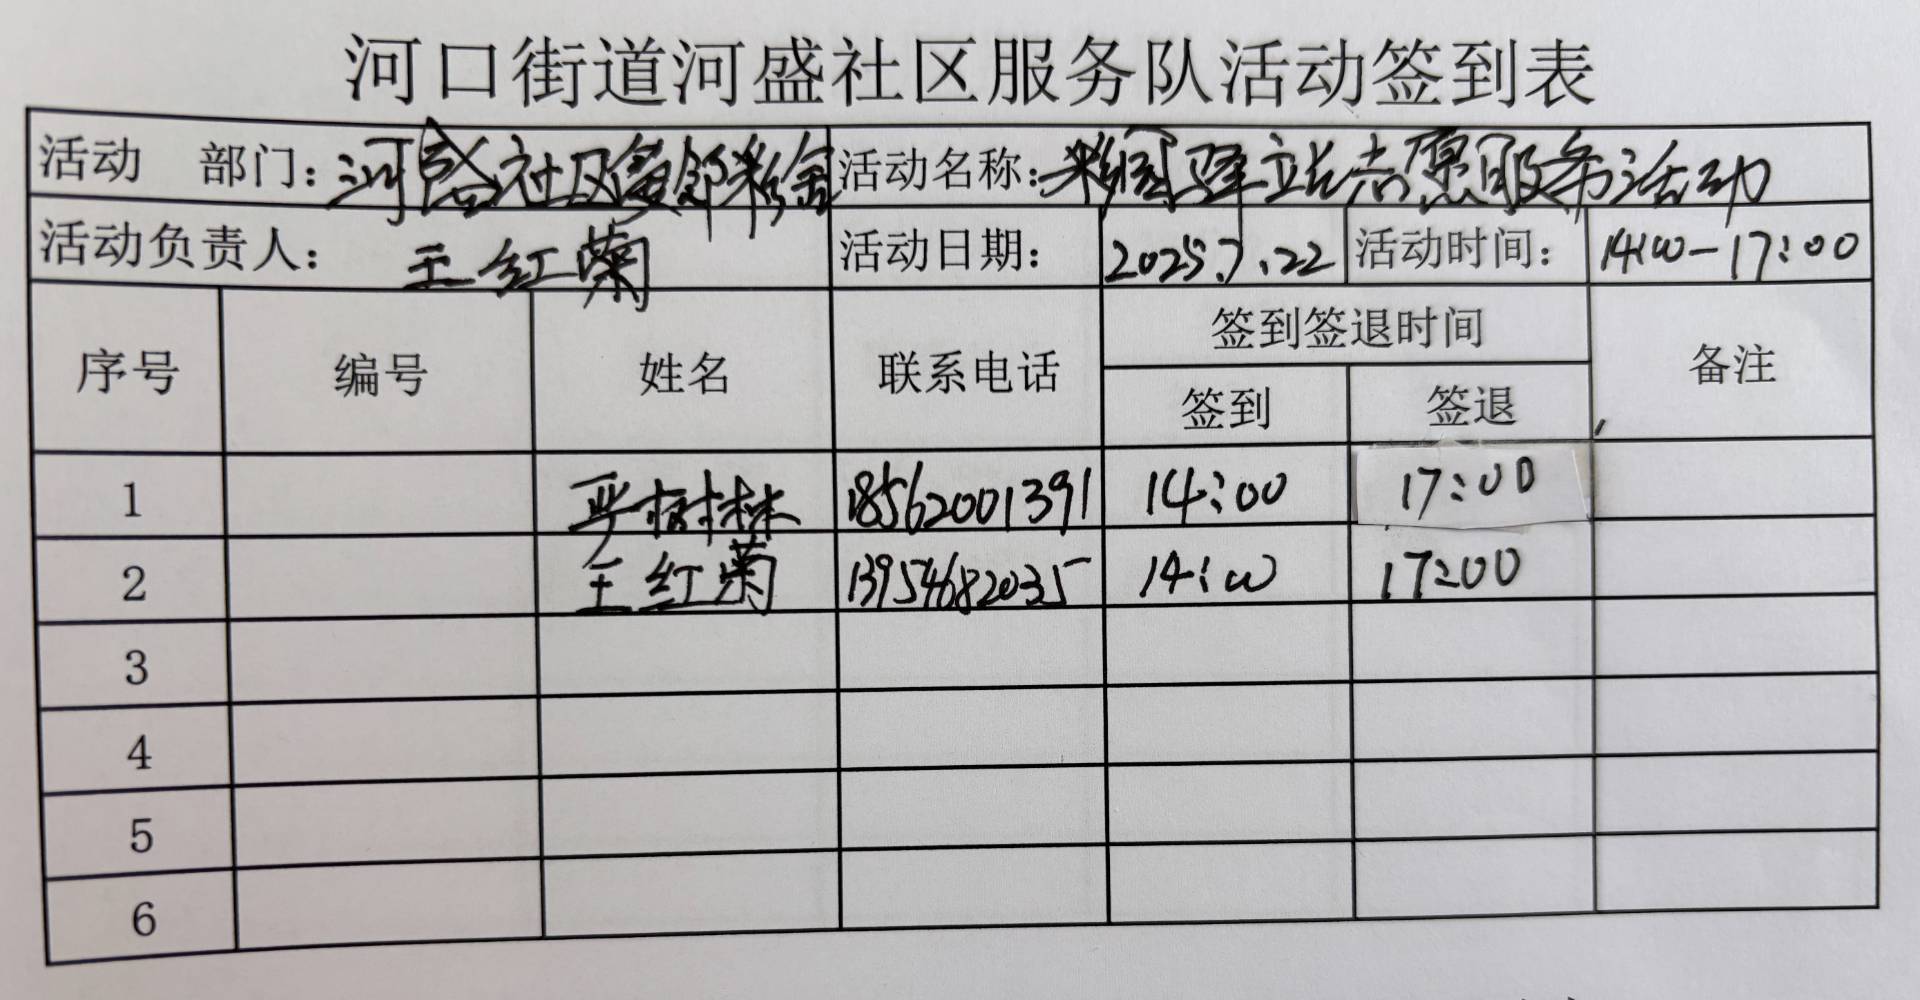 河口街道河盛社区服务队活动签到表
活动 部门：河盛社区爱邻 活动名称：驿站志愿服务活动
活动负责人：王红菊 活动日期：2025.7.22 活动时间：14:00-17:00
序号 编号 姓名 联系电话 签到签退时间 备注
签到 签退
1 严树林 18562001391 14:00 17:00
2 王红菊 13954682035 14:00 17:00
3
4
5
6